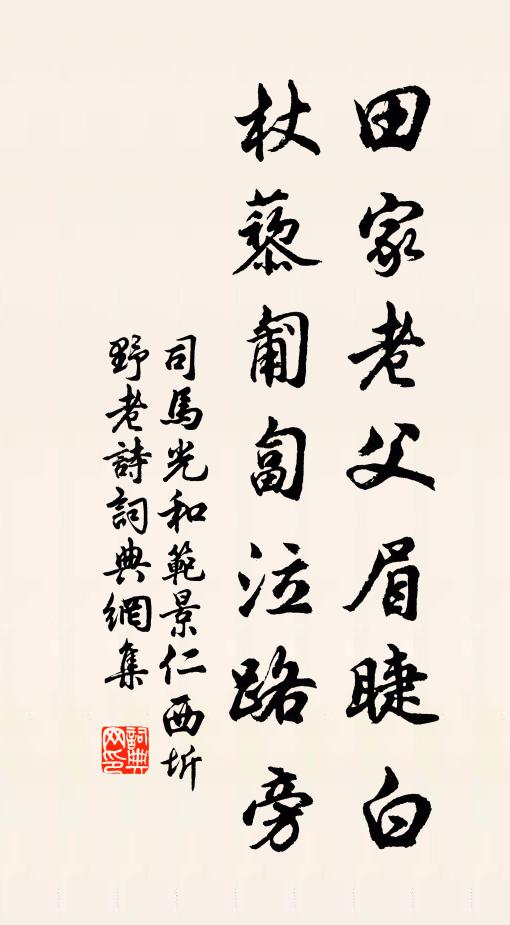 田家老父眉睫白
杖藜匍匐泣路旁
司馬光和範景仁西圻
野老詩詞典網集
詞典网印